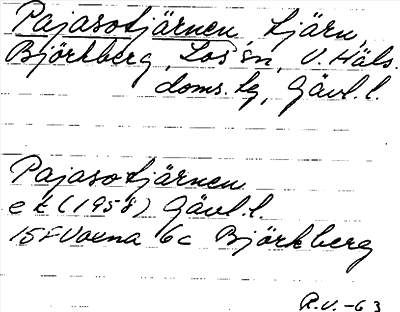 Pajasotjärnen tjärn,
Björkberg, Los sn, V. Häls.
doms. lg, Gävl. l.
Pajasotjärnen
ek (1958) Gävl. l.
15F Voxna 6c Björkberg
R.V. -63